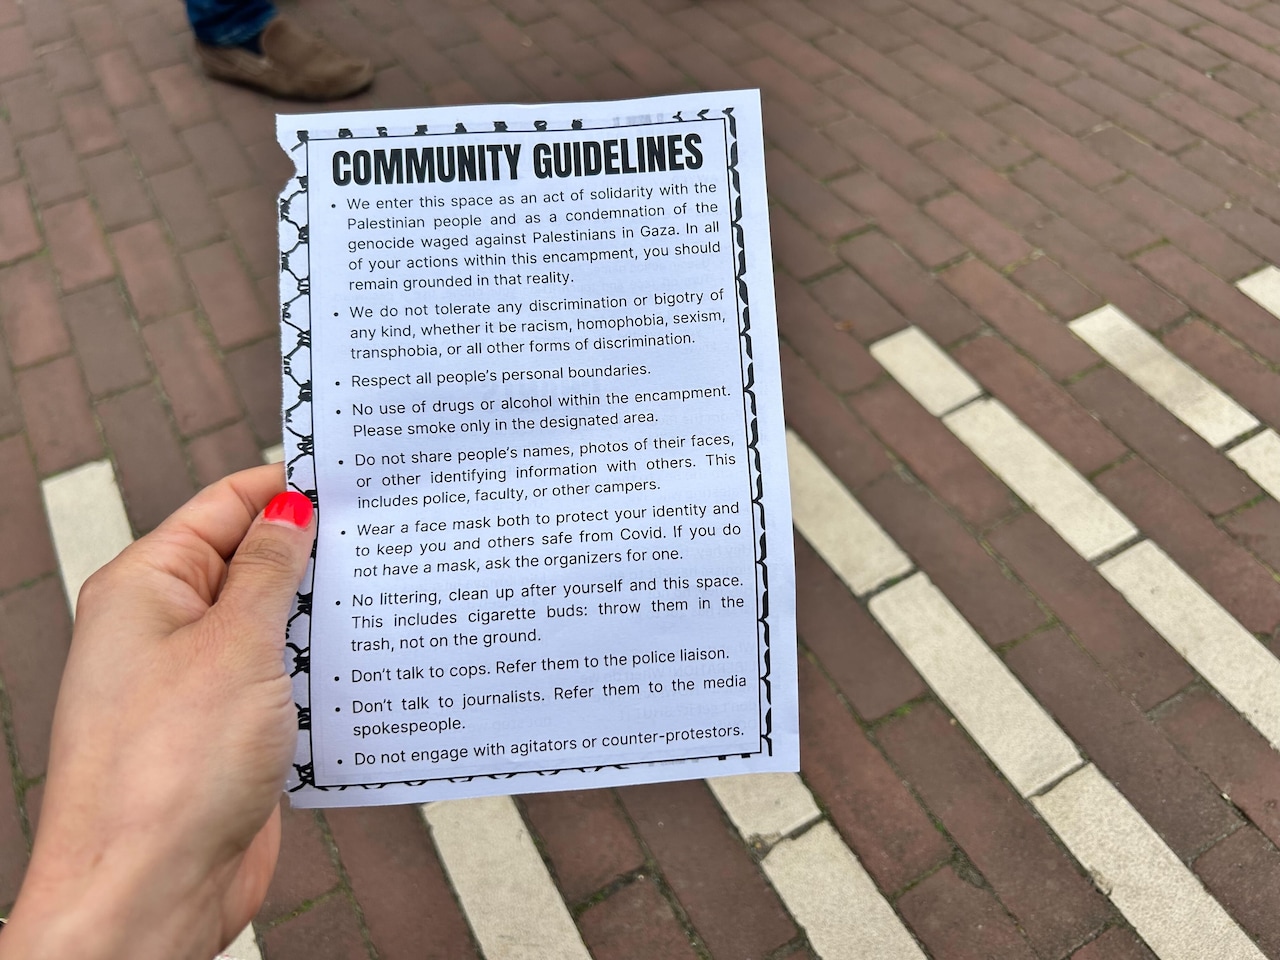 COMMUNITY GUIDELINES
• We enter this space as an act of solidarity with the
Palestinian people and as a condemnation of the
genocide waged against Palestinians in Gaza. In all
of your actions within this encampment, you should
remain grounded in that reality.
• We do not tolerate any discrimination or bigotry of
any kind, whether it be racism, homophobia, sexism,
transphobia, or all other forms of discrimination.
• Respect all people's personal boundaries.
• No use of drugs or alcohol within the encampment.
Please smoke only in the designated area.
• Do not share people's names, photos of their faces,
or other identifying information with others. This
includes police, faculty, or other campers.
• Wear a face mask both to protect your identity and
to keep you and others safe from Covid. If you do
not have a mask, ask the organizers for one.
• No littering, clean up after yourself and this space.
This includes cigarette buds: throw them in the
trash, not on the ground.
• Don't talk to cops. Refer them to the police liaison.
• Don't talk to journalists. Refer them to the media
spokespeople.
• Do not engage with agitators or counter-protestors.